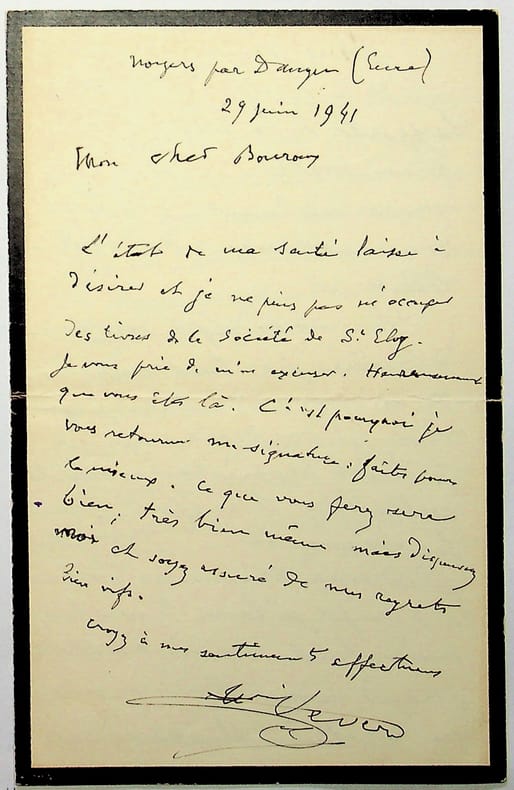 Noyers par Dangu (Eure)
29 juin 1941
Mon cher Bouroux
L'état de ma santé laisse à
désirer et je ne puis pas m'occuper
des livres de la Société de St Eloy.
Je vous prie de m'en excuser. Heureusement
que vous êtes là. C'est pourquoi je
vous retourne ma signature : faites pour
le mieux. Ce que vous ferez sera
bien, très bien même mais
moi et soyez assuré de mes regrets
bien vifs.
Croyez à mes sentiments affectueux